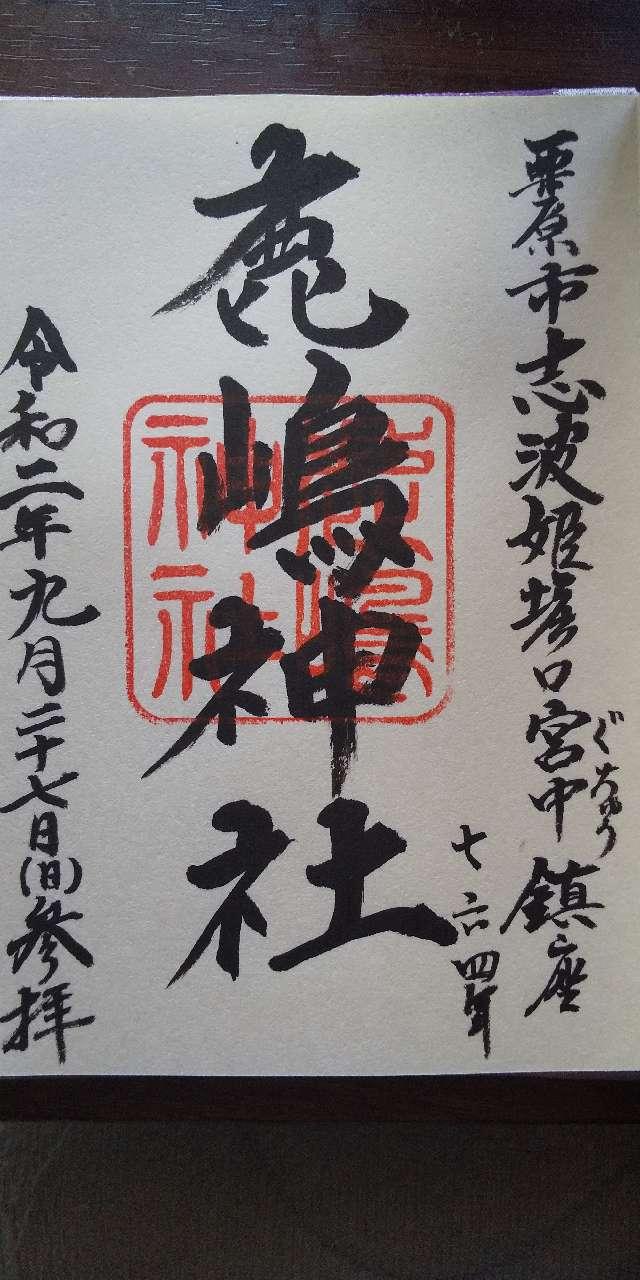 栗原市志波姫堀口宮中鎮座
ぐちゅう
七六四年
鹿嶋神社
鹿嶋神社
令和二年九月二十七日(日)参拝